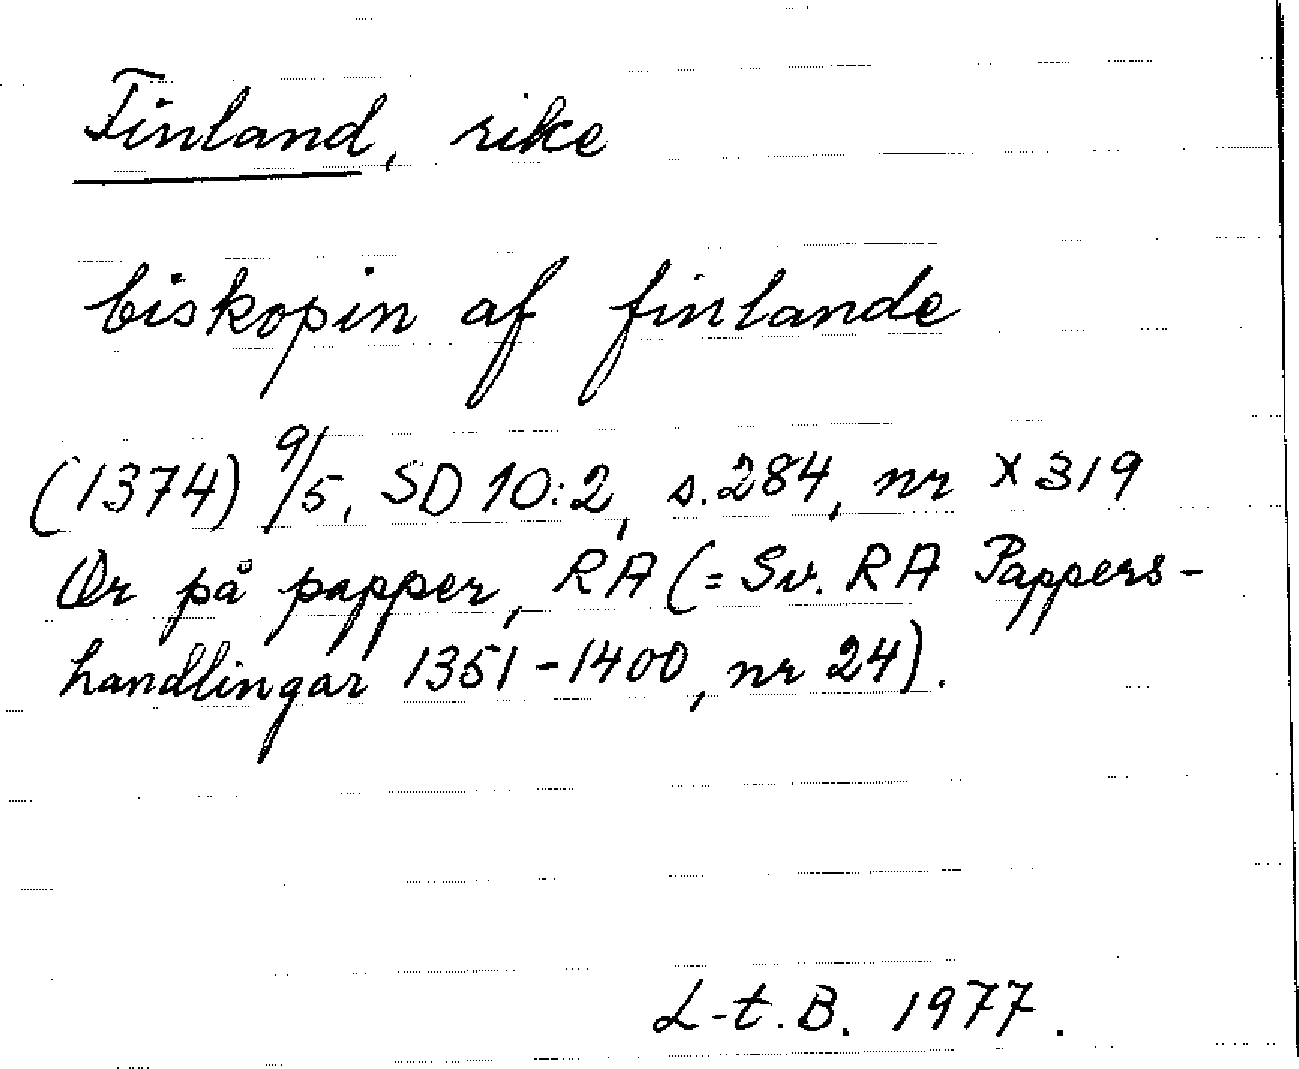 Finland, rike
biskopin af finlande
(1374) 9/5, SD 10:2, s.284, nr X 319
Or på papper, RA (= Sv. RA Pappers-
handlingar 1351-1400, nr 24).
L-t.B. 1977.